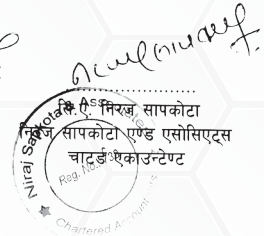 सि.ए. निरज सापकोटा
निरज सापकोटा एण्ड एसोसिएट्स
चाटर्ड एकाउन्टेण्ट
Niraj Sapkota & Associates
Reg. No.
Chartered Accountants